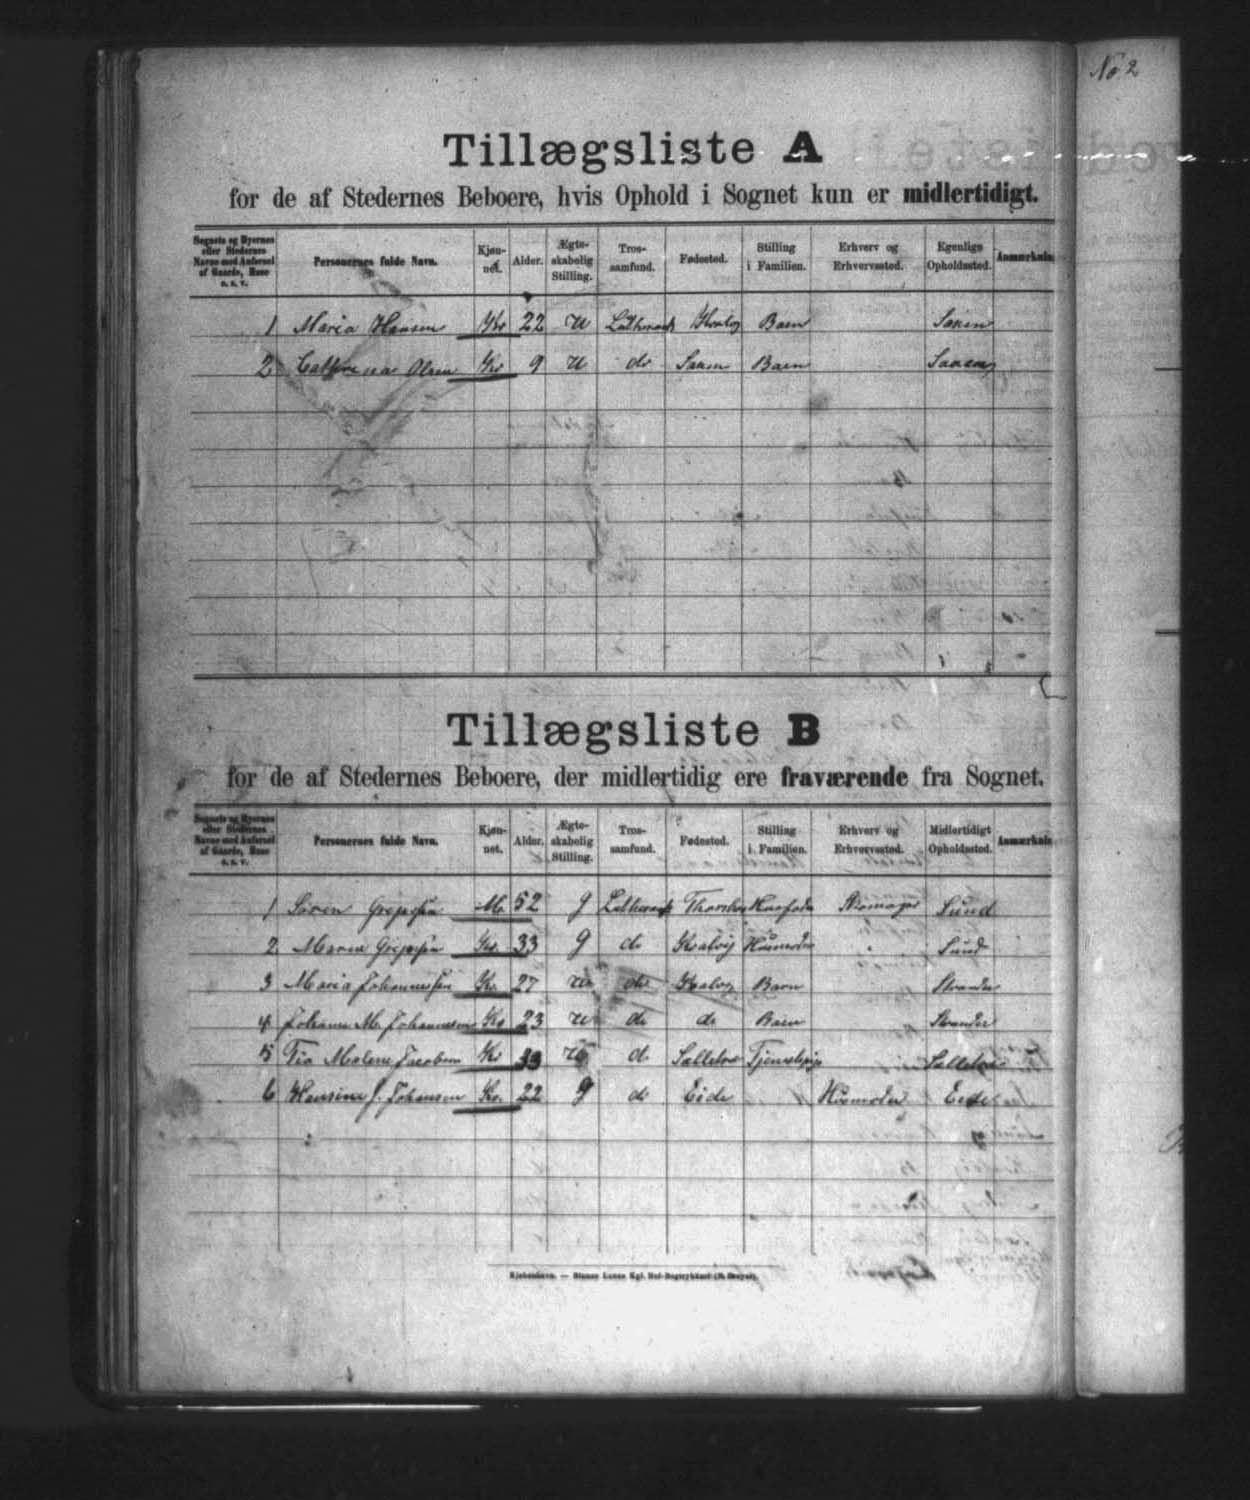 No 2
Tillægsliste A
for de af Stedernes Beboere, hvis Ophold i Sognet kun er midlertidigt.
Sognets og Byernes eller Stedernes Navne med Anførsel af Gaarde, Huse o. s. v. Personernes fulde Navn. Kjønnet. Alder. Ægteskabelig Stilling. Trossamfund. Fødested. Stilling i Familien. Erhverv og Erhvervssted. Egenlige Opholdssted. Anmærkning
1 Maria Hansen Kv 22 U Luthersk Kvalvig Barn Saxen
2 Cathrina Olsen Kv 9 U do Saxen Barn Saxen
Tillægsliste B
for de af Stedernes Beboere, der midlertidig ere fraværende fra Sognet.
Sognets og Byernes eller Stedernes Navne med Anførsel af Gaarde, Huse o. s. v. Personernes fulde Navn. Kjønnet. Alder. Ægteskabelig Stilling. Trossamfund. Fødested. Stilling i Familien. Erhverv og Erhvervssted. Midlertidigt Opholdssted. Anmærkning
1 Søren M 52 g Luthersk Husfader Skomager Sund
2 Kv 33 g do Kvalvig Husmoder Sund
3 Maria Johannessen Kv 27 U do Kvalvig Barn Strander
4 Johanne M. Johannessen Kv 23 U do do Barn Strander
5 Tia Malene Jacobsen Kv 33 U d. Selletræ Tjenestepige Selletræ
6 Hansine J. Johansen Kv. 22 g do Eide Husmoder Eide
Kjøbenhavn. — Bianco Lunos Kgl. Hof-Bogtrykkeri (F. Dreyer).